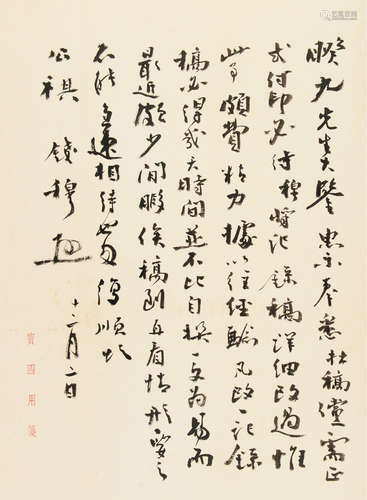 暌九先生大鑒惠示奉悉拙稿儻需正
式付印必待穆將記錄稿詳細改過惟
此事頗費精力據以往經驗凡改一記錄
稿必得幾天時間並不比自撰一文為易而
最近頗少閒暇俟稿到再看情形要之
不能急速相待順頌
公祺 錢穆
十二月二日
賓四用箋